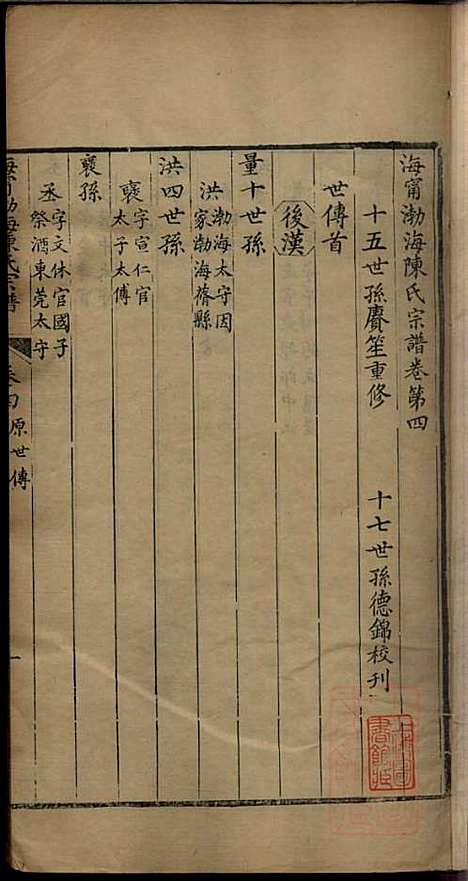 海甯渤海陳氏宗譜卷第四
十五世孫賡笙重修
十七世孫德錦校刊
世傳首
後漢
量十世孫
洪渤海太守因
家渤海蓨縣
洪四世孫
襃字宣仁官
太子太傅
襃孫
丞字文休官國子
祭酒東莞太守
海甯渤海陳氏宗譜
卷四原世傳
一